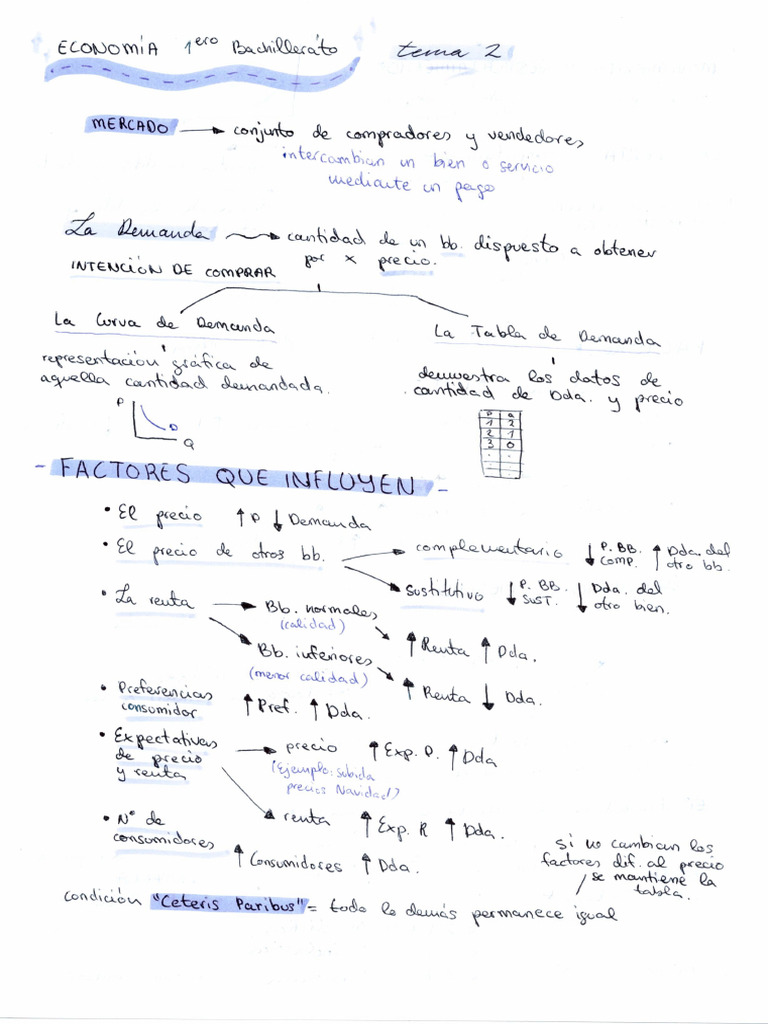 ECONOMÍA 1ero Bachillerato tema 2
MERCADO → conjunto de compradores y vendedores
intercambian un bien o servicio
mediante un pago
La Demanda → cantidad de un bb. dispuesto a obtener
por x precio.
INTENCIÓN DE COMPRAR
La Curva de Demanda
representación gráfica de
aquella cantidad demandada.
P
D
Q
La Tabla de Demanda
demuestra los datos de
cantidad de Dda. y precio
P Q
1 2
2 1
3 0
- FACTORES QUE INFLUYEN -
• El precio ↑ P ↓ Demanda
• El precio de otros bb. → complementario ↓ P. BB. COMP. ↑ Dda. del otro bb.
→ sustitutivo ↓ P. BB. SUST. ↓ Dda. del otro bien.
• La renta → Bb. normales
(calidad)
↑ Renta ↑ Dda.
Bb. inferiores
(menor calidad)
↑ Renta ↓ Dda.
• Preferencias
consumidor
↑ Pref. ↑ Dda.
• Expectativas
de precio
y renta
→ precio ↑ Exp. P. ↑ Dda
(Ejemplo: subida
precios Navidad)
renta ↑ Exp. R ↑ Dda.
• Nº de
consumidores
↑ Consumidores ↑ Dda.
si no cambian los
factores dif. al precio
se mantiene la
tabla.
condición "Ceteris Paribus" = todo lo demás permanece igual